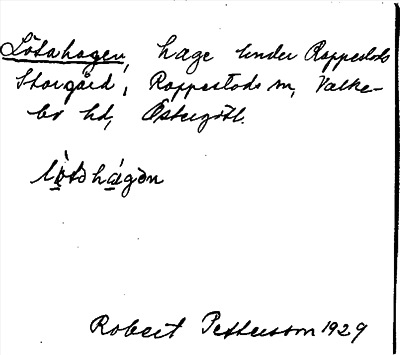 Lötahagen, hage under Rappestads
Storgård, Rappestads sn, Valke-
bo hd, Östergötl.
lö̀tahágən
Robert Petterson 1929